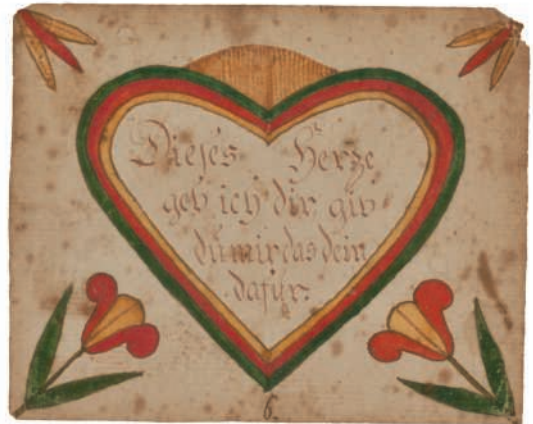 Dieses Herze
geb ich dir gib
du mir das dein
dafür.
6.